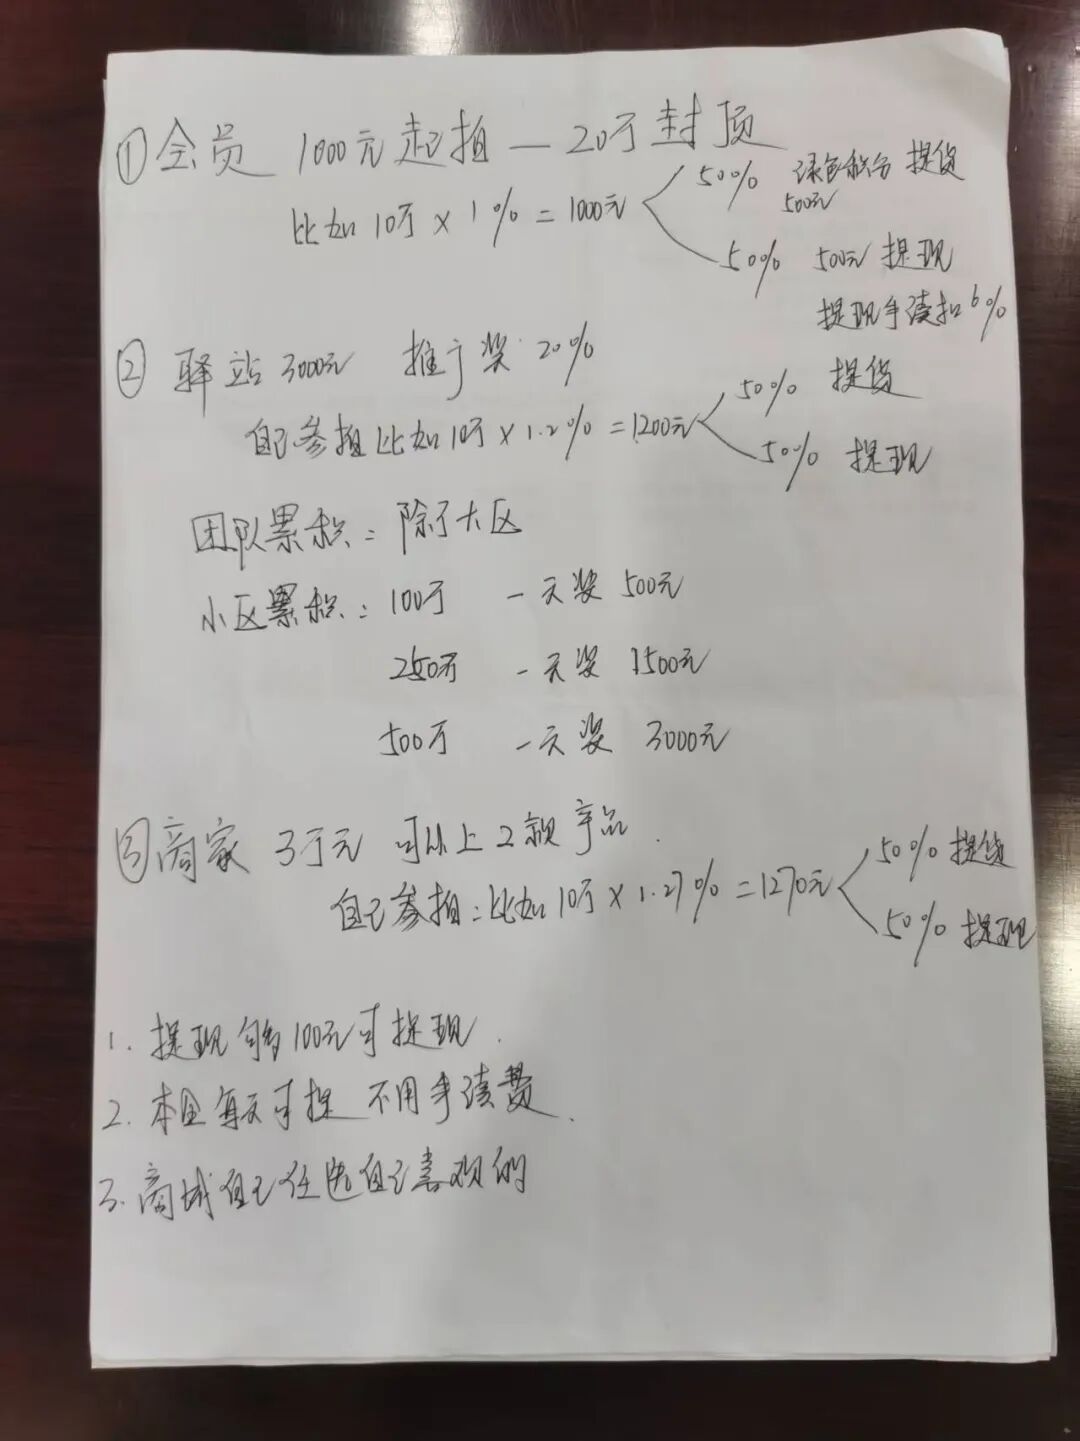 ① 会员 1000元起拍 — 20万封顶
比如10万×1%=1000元
50% 绿色积分 提货
500元
50% 500元 提现
提现手续扣6%
② 驿站3000元 推广奖:20%
自己参拍比如10万×1.2%=1200元
50% 提货
50% 提现
团队累积:除了大区
小区累积:100万 一天奖 500元
250万 一天奖 1500元
500万 一天奖 3000元
③ 商家 3万元 可以上2款产品.
自己参拍:比如10万×1.27%=1270元
50% 提货
50% 提现
1. 提现 够100元可提现.
2. 本金每天可提 不用手续费.
3. 商城自己任选自己喜欢的